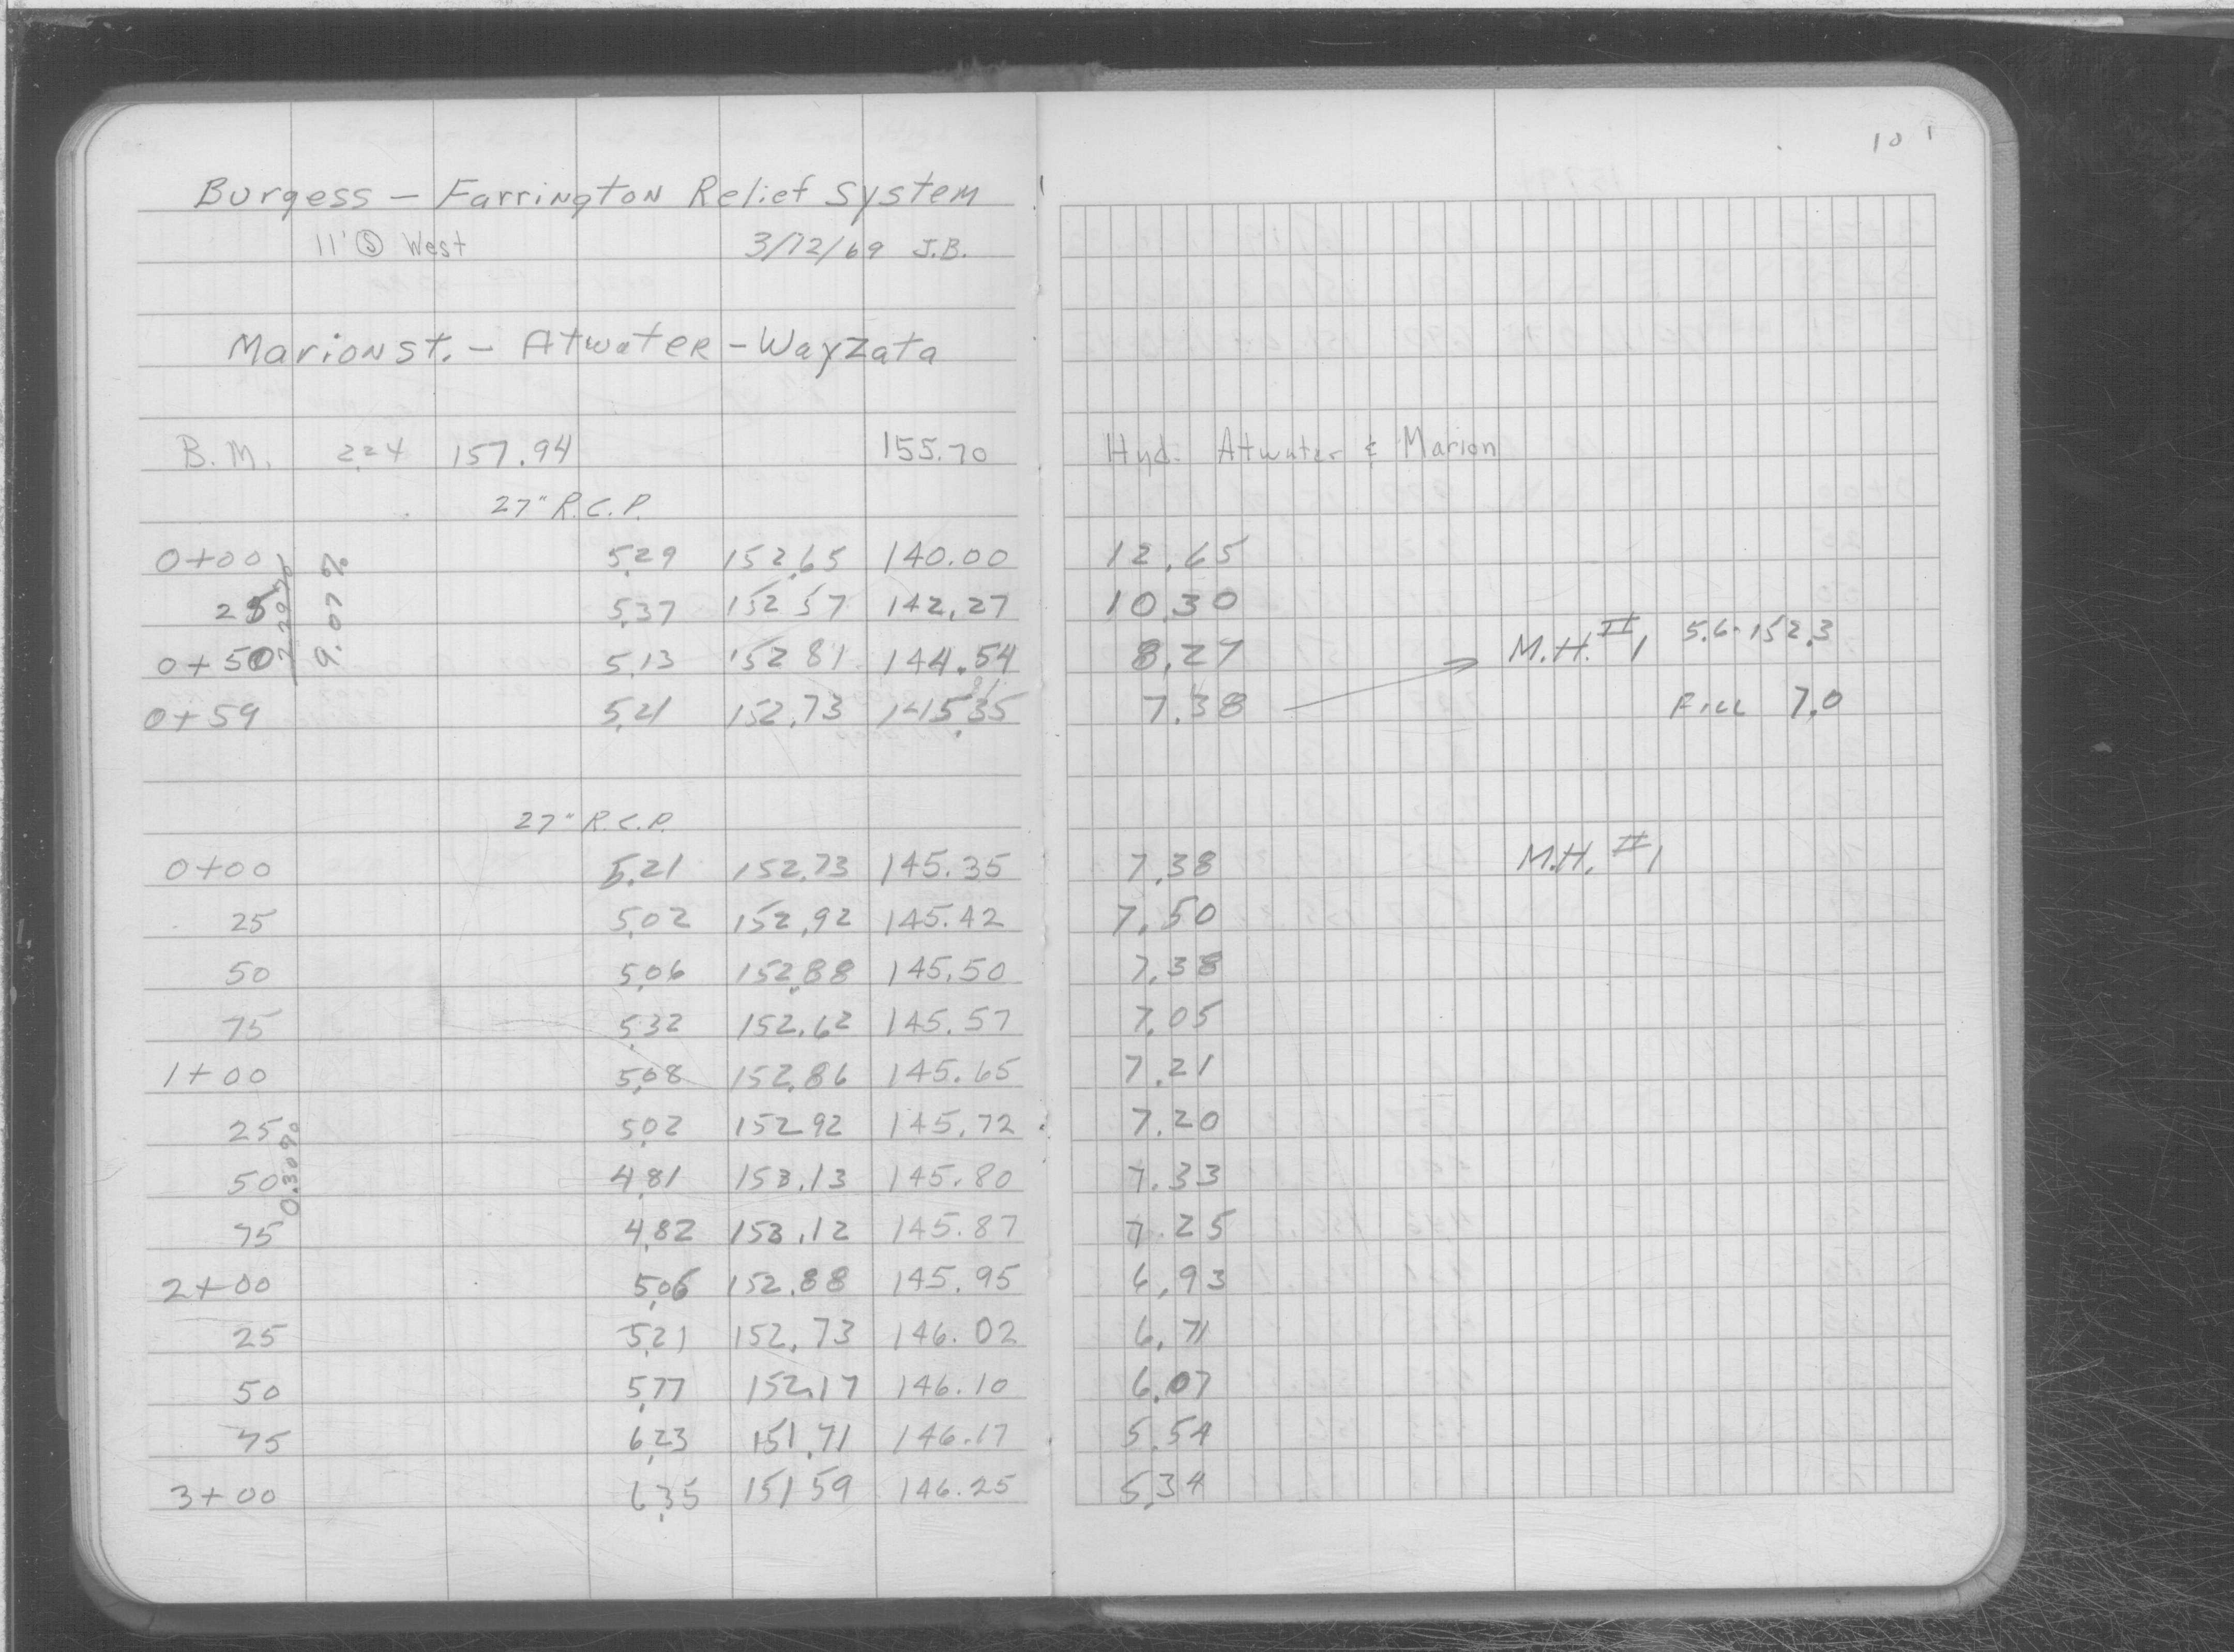 101
Burgess - Farrington Relief System
11' Ⓢ West 3/12/69 J.B.
Marion St. - Atwater - Wayzata
B.M. 2.24 157.94 155.70 Hyd. Atwater & Marion
27" R.C.P.
0+00 5.29 152.65 140.00 12.65
25 5.37 152.57 142.27 10.30
0+50 5.13 152.81 144.54 8.27 M.H. #1 5.6-152.3
0+59 5.21 152.73 145.35 7.38 Fill 7.0
9.07%
27" R.C.P.
0+00 5.21 152.73 145.35 7.38 M.H. #1
25 5.02 152.92 145.42 7.50
50 5.06 152.88 145.50 7.38
75 5.32 152.62 145.57 7.05
1+00 5.08 152.86 145.65 7.21
25 5.02 152.92 145.72 7.20
50 4.81 153.13 145.80 7.33
75 4.82 153.12 145.87 7.25
0.30%
2+00 5.06 152.88 145.95 6.93
25 5.21 152.73 146.02 6.71
50 5.77 152.17 146.10 6.07
75 6.23 151.71 146.17 5.54
3+00 6.35 151.59 146.25 5.34